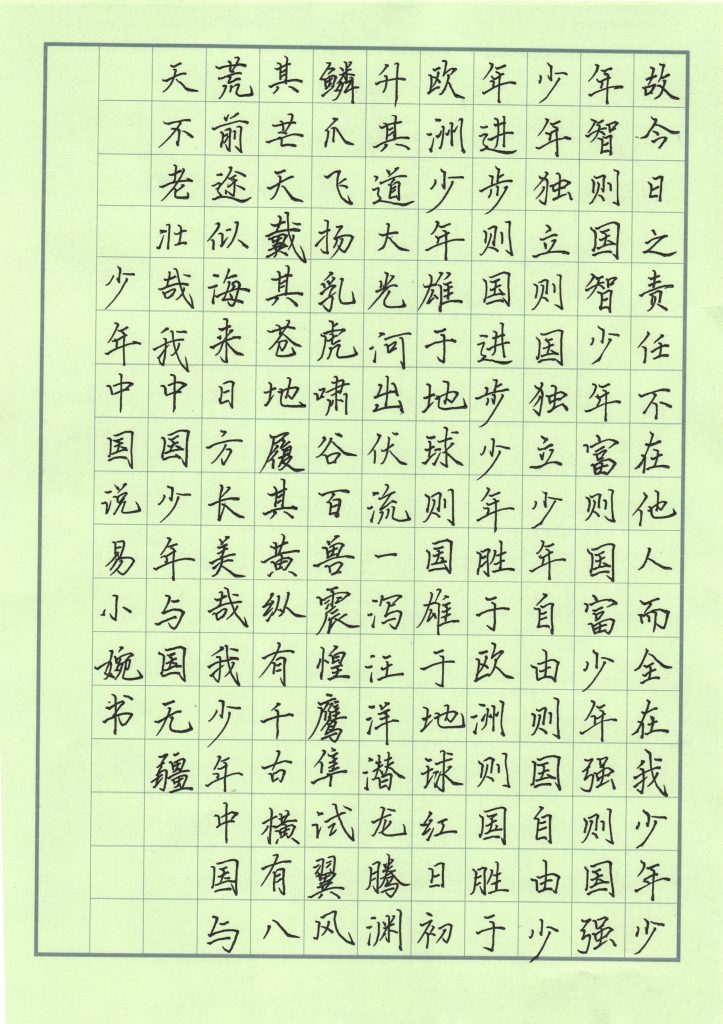 故今日之责任不在他人而全在我少年少
年智则国智少年富则国富少年强则国强
少年独立则国独立少年自由则国自由少
年进步则国进步少年胜于欧洲则国胜于
欧洲少年雄于地球则国雄于地球红日初
升其道大光河出伏流一泻汪洋潜龙腾渊
鳞爪飞扬乳虎啸谷百兽震惶鹰隼试翼风
其芒天戴其苍地履其黄纵有千古横有八
荒前途似海来日方长美哉我少年中国与
天不老壮哉我中国少年与国无疆
少年中国说易小婉书